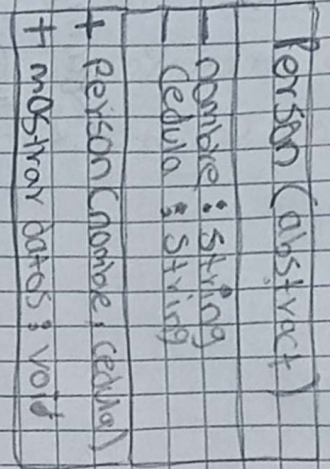 Person (abstract)
- nombre : String
- Cedula : String
+ Person (nombre, cedula)
+ mostrar datos : void